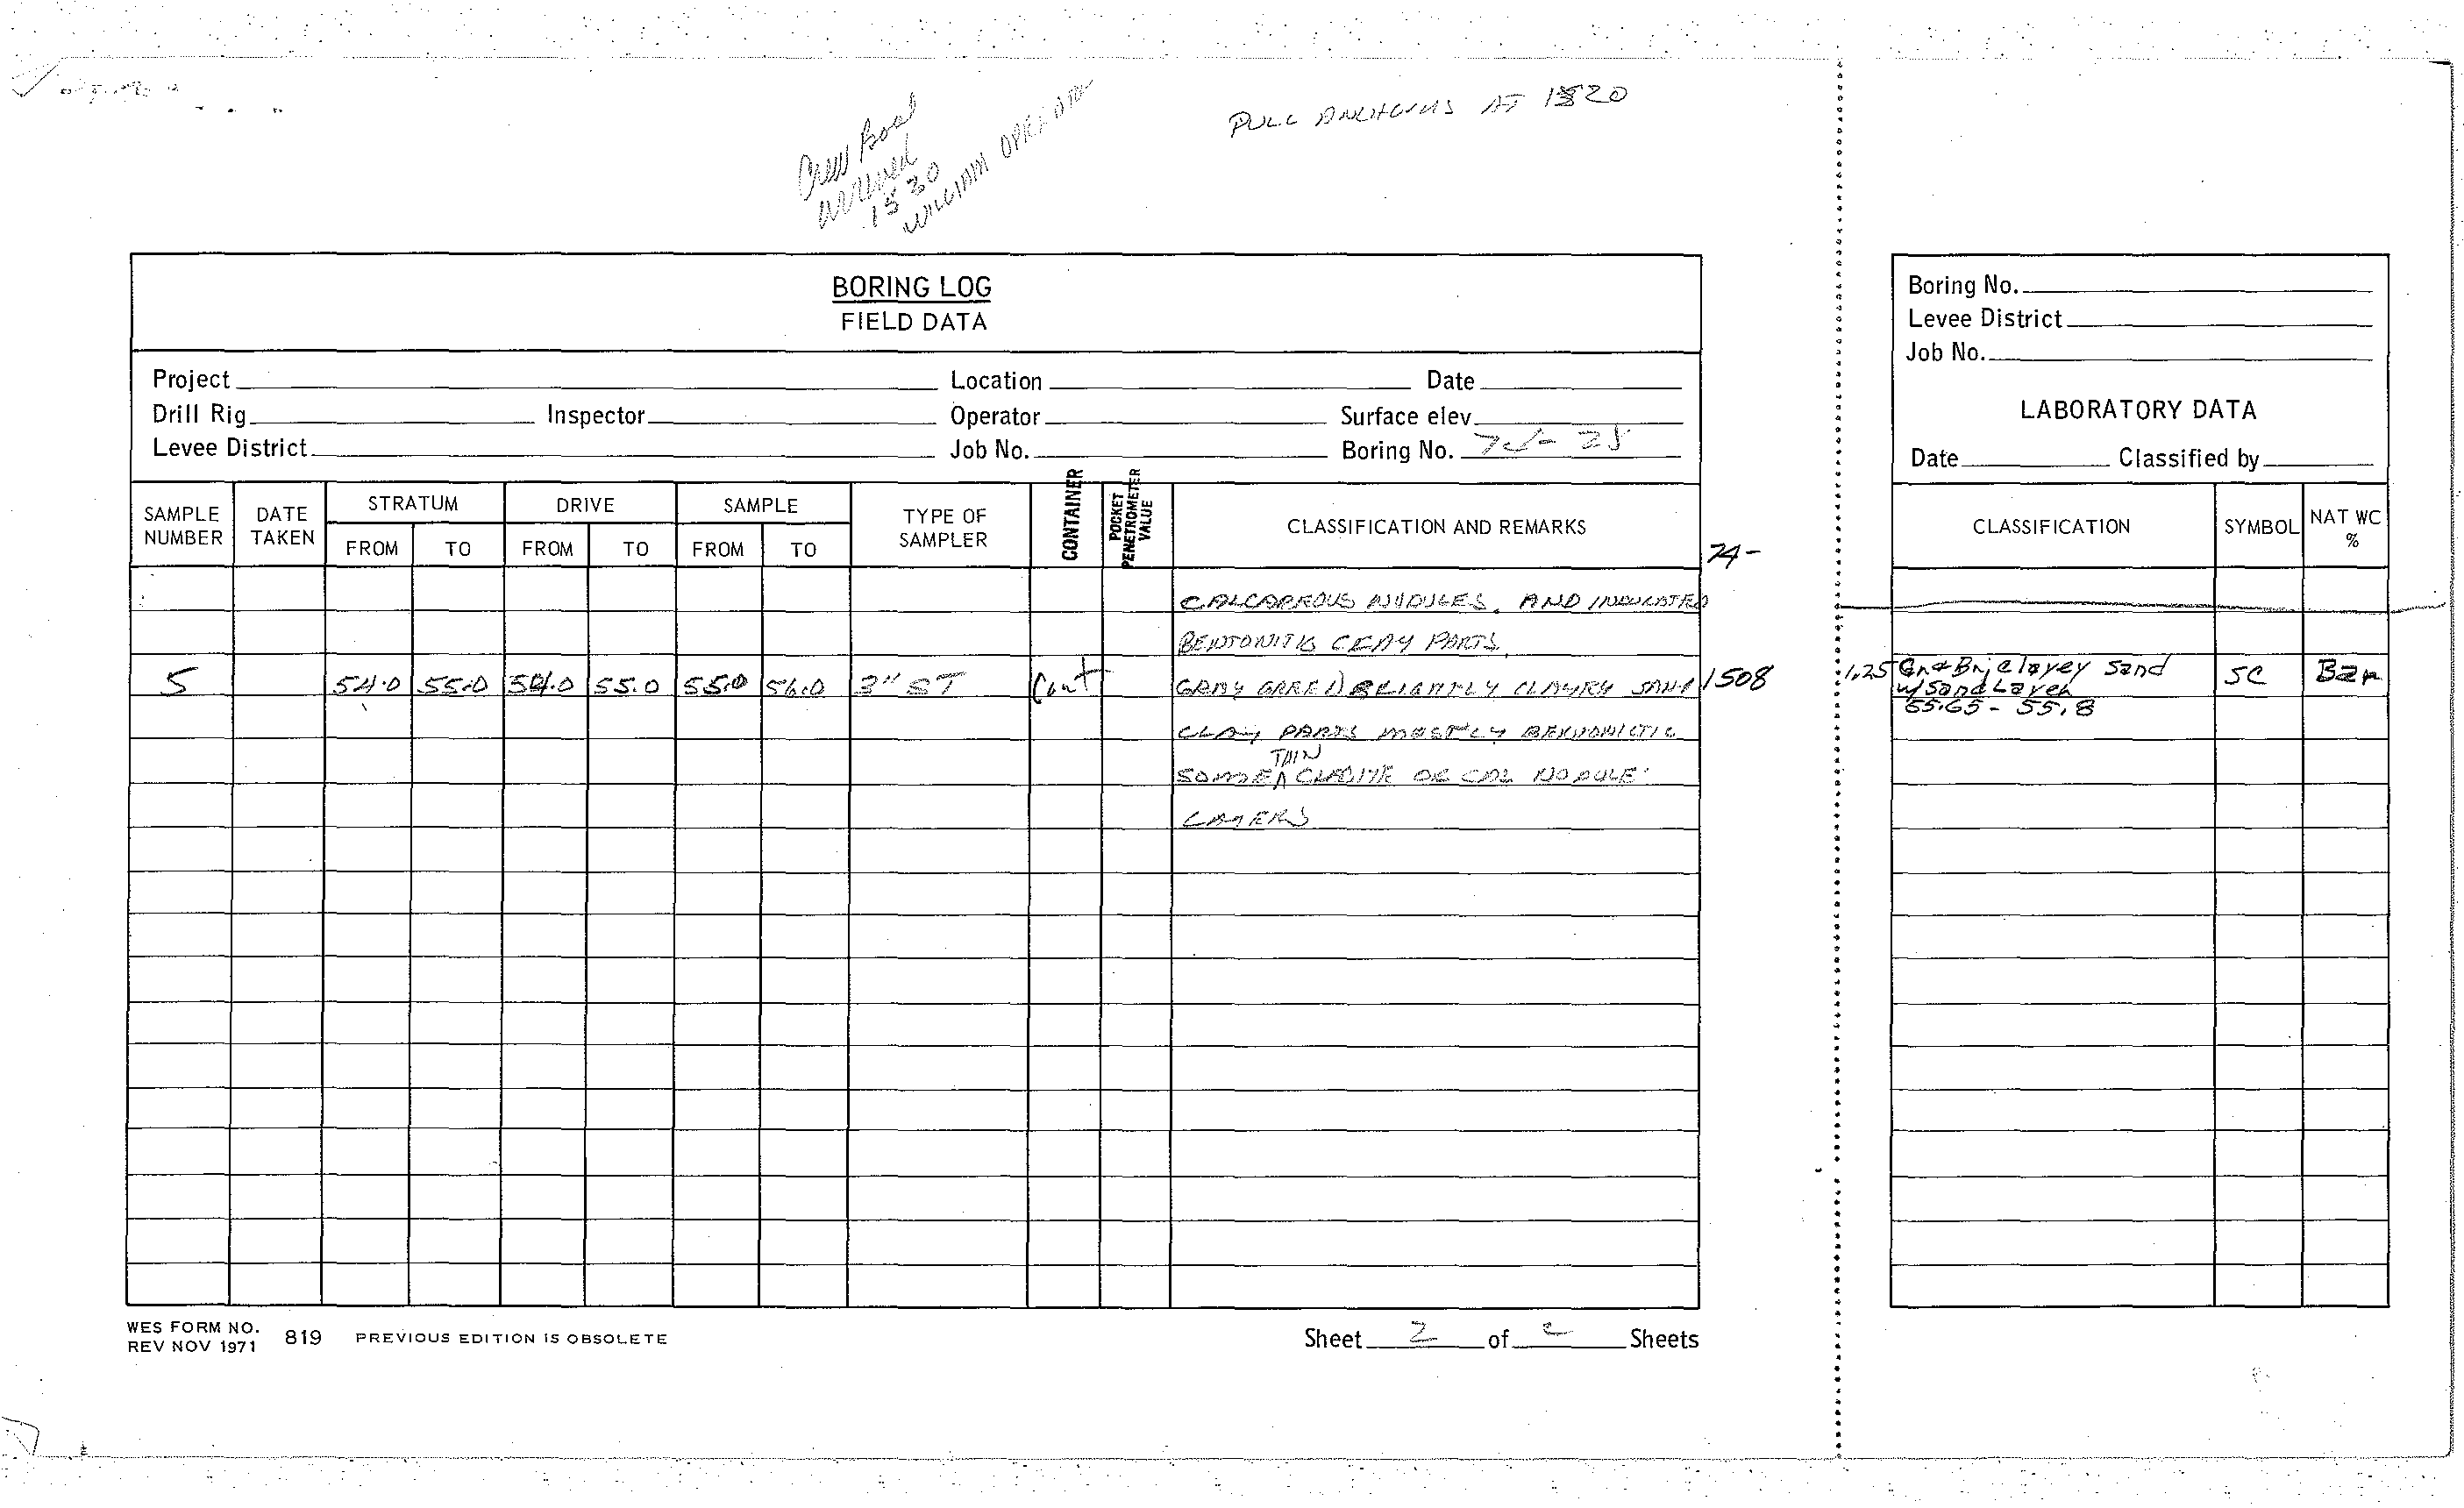 PULL ANCHORS AT 1520
Crew Boat
arrived
1530
WILLIAM OPERATOR
BORING LOG
FIELD DATA
Project Location Date
Drill Rig Inspector Operator Surface elev.
Levee District Job No. Boring No. 74-28
SAMPLE NUMBER DATE TAKEN STRATUM DRIVE SAMPLE TYPE OF SAMPLER CONTAINER POCKET PENETROMETER VALUE CLASSIFICATION AND REMARKS
FROM TO FROM TO FROM TO
74-
CALCAREOUS NODULES, AND INDURATED
BENTONITIC CLAY PARTS,
5 54.0 55.0 54.0 55.0 55.0 56.0 3" ST Cont GRAY CLAYEY SAND 1508
CLAY PARTS MOSTLY BENTONITIC
THIN
SOME OR CAL NODULE
LAYERS
WES FORM NO. 819 PREVIOUS EDITION IS OBSOLETE
REV NOV 1971
Sheet 2 of 2 Sheets
Boring No.
Levee District
Job No.
LABORATORY DATA
Date Classified by
CLASSIFICATION SYMBOL NAT WC %
1.25 Gn & Bn; clayey sand SC Ban
w/ Sand Layer
55.65 - 55.8